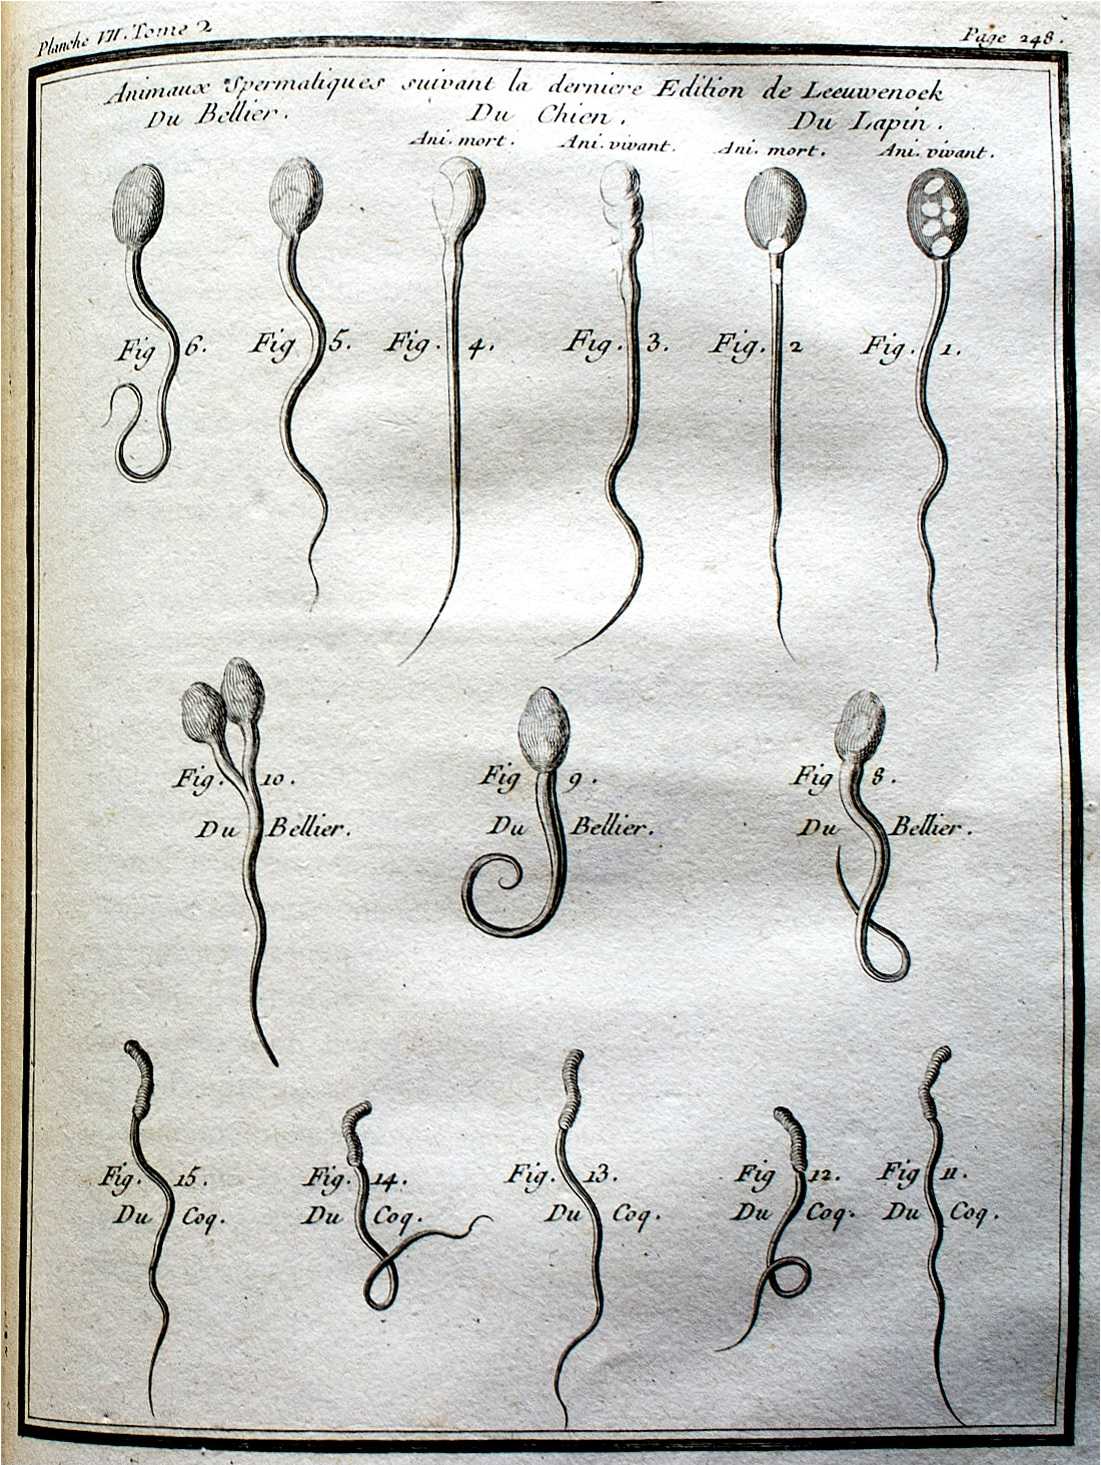 Planche VII. Tome 2
Page 248.
Animaux Spermatiques suivant la derniere Edition de Leeuwenoek
Du Bellier. Du Chien. Du Lapin.
Ani. mort. Ani. vivant. Ani. mort. Ani. vivant.
Fig 6. Fig 5. Fig. 4. Fig. 3. Fig. 2 Fig. 1.
Fig. 10. Fig 9. Fig 8.
Du Bellier. Du Bellier. Du Bellier.
Fig. 15. Fig. 14. Fig. 13. Fig 12. Fig 11.
Du Coq. Du Coq. Du Coq. Du Coq. Du Coq.